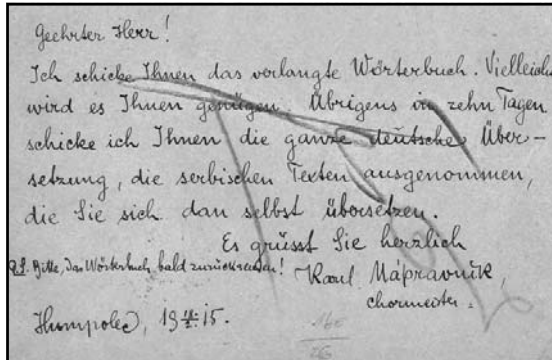 Geehrter Herr!
Ich schicke Ihnen das verlangte Wörterbuch. Vielleicht
wird es Ihnen genügen. Übrigens in zehn Tagen
schicke ich Ihnen die ganze deutsche Über-
setzung, die serbischen Texten ausgenommen,
die Sie sich dan selbst übersetzen.
Es grüsst Sie herzlich
P.S. Bitte, das Wörterbuch bald zurücksenden!
Karel Mápravník,
chormeister.
Humpolec, 19 15.